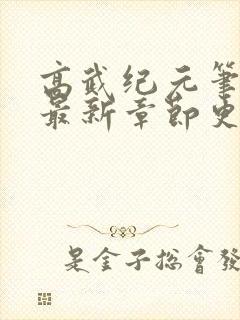 高武纪元笔
最新章节免
是金子总会发